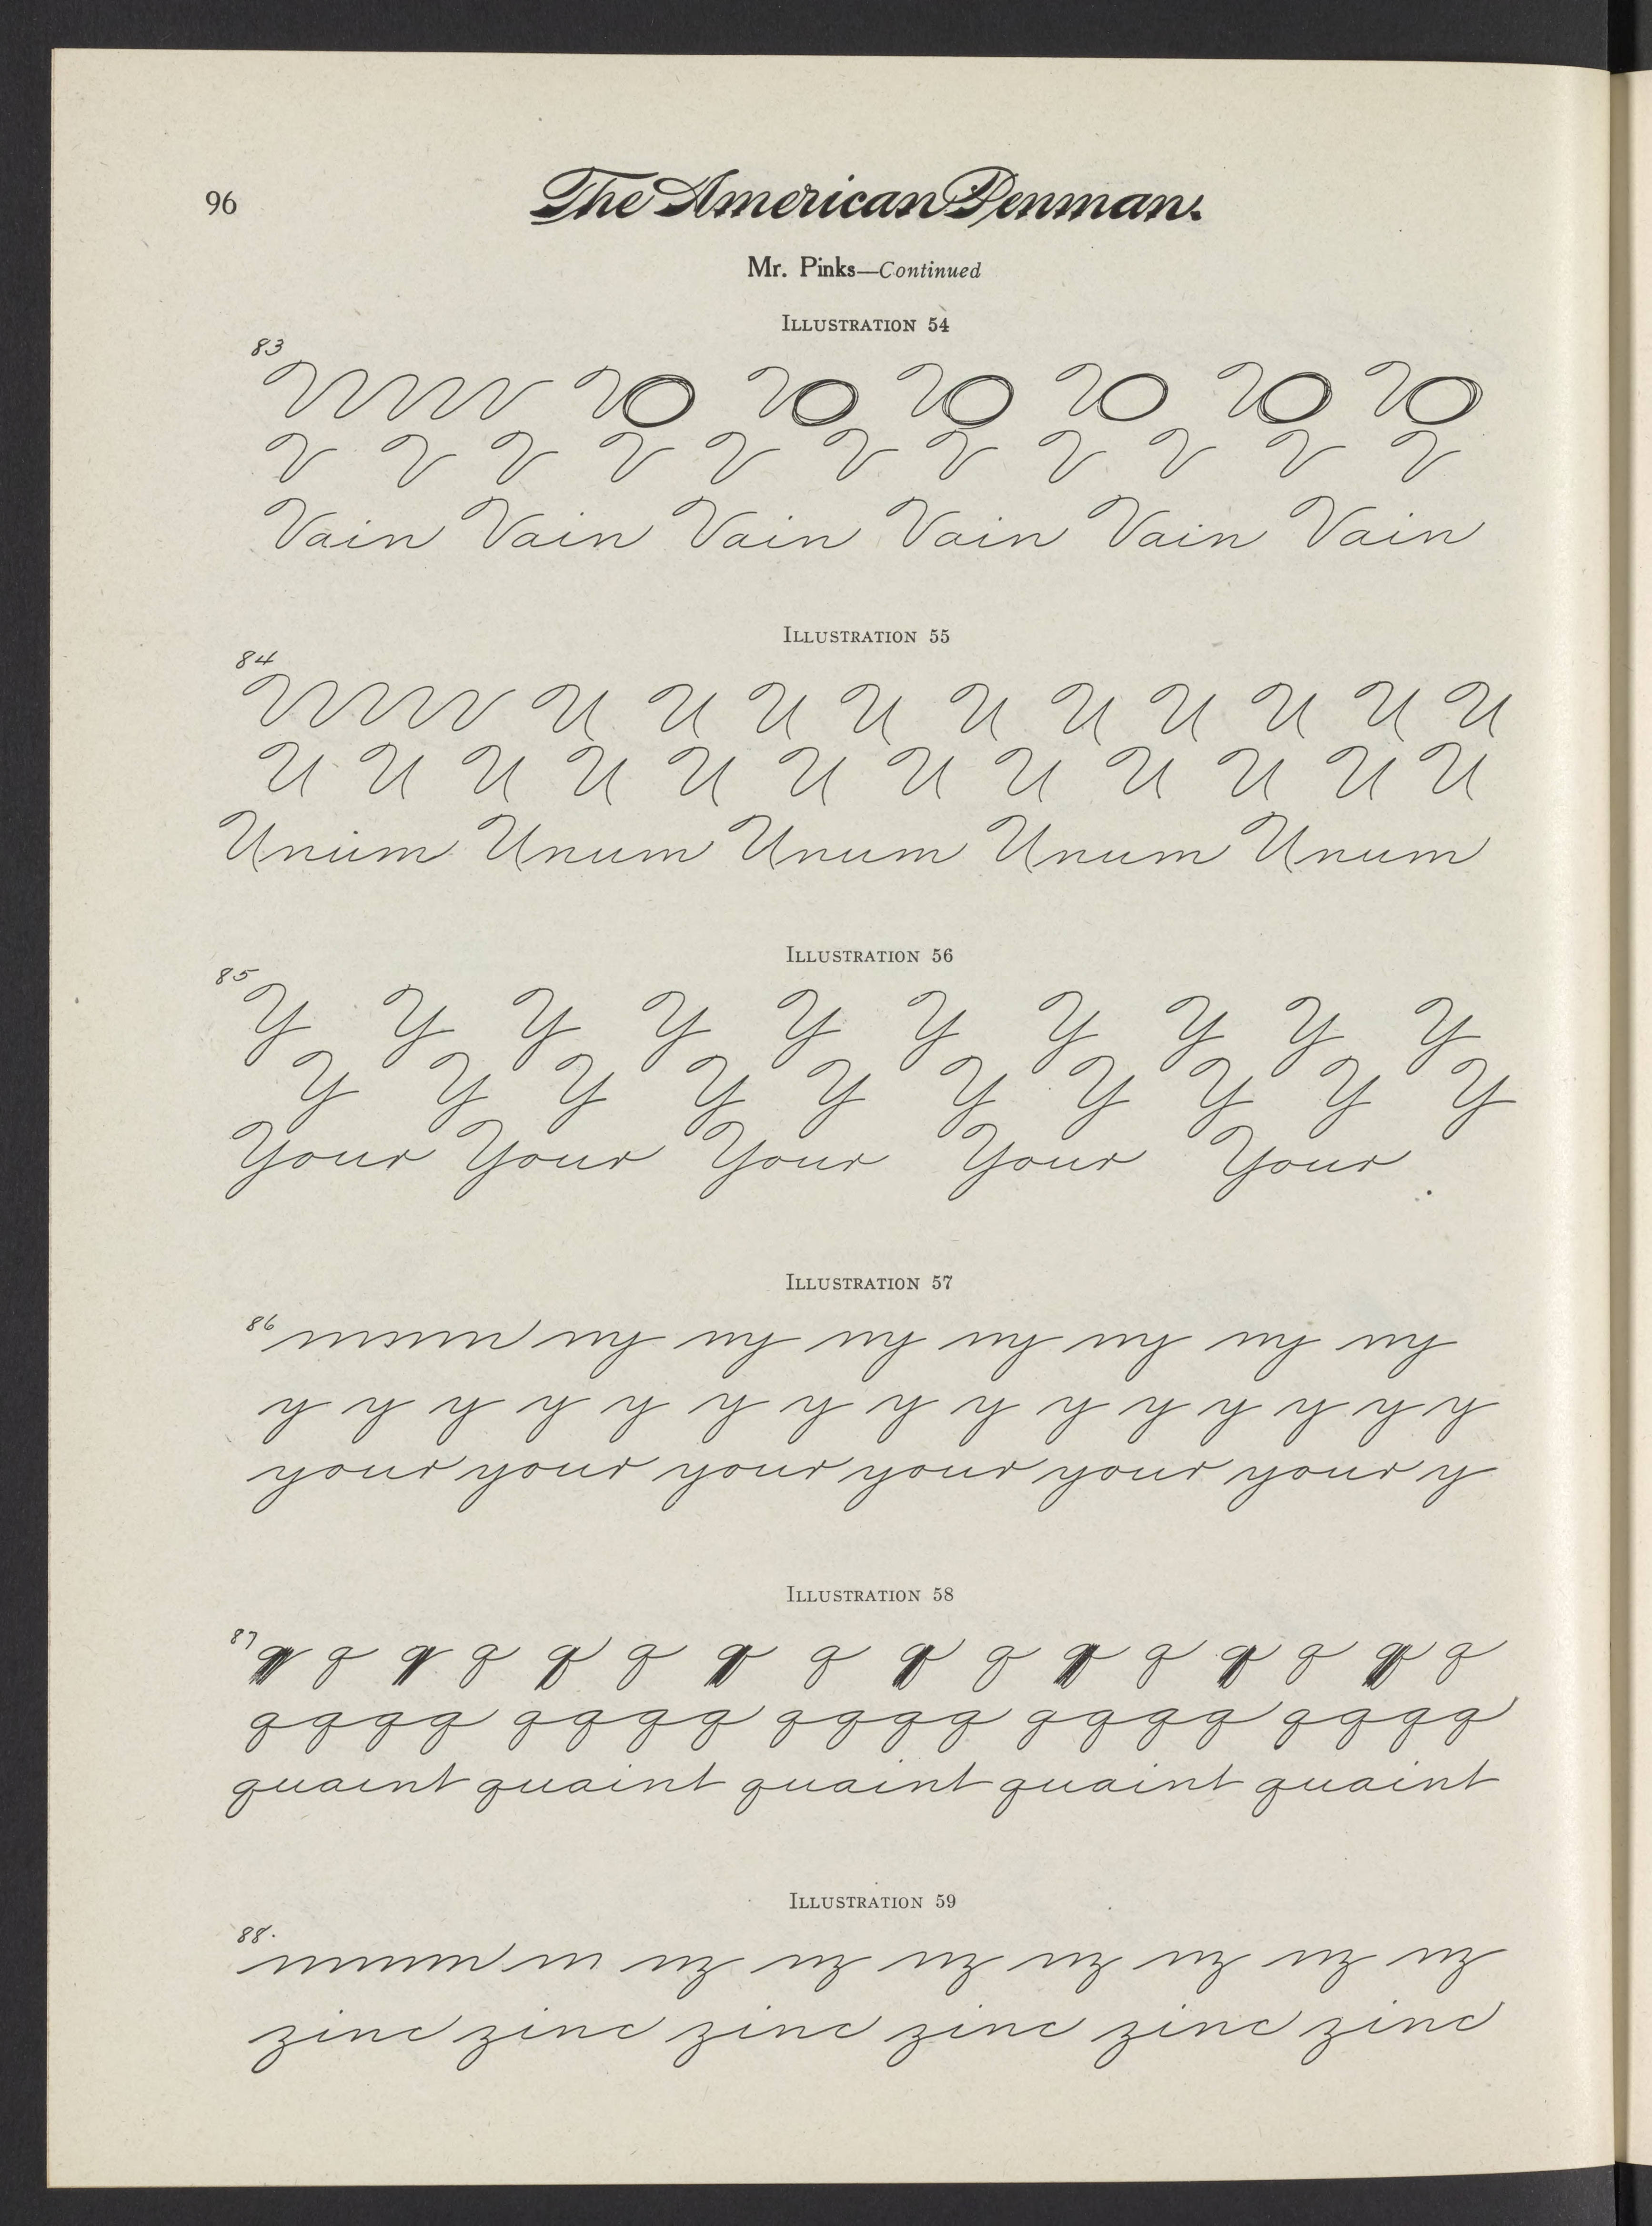 96
The American Penman.
Mr. Pinks—Continued
Illustration 54
83
V V V V V V V V V V V
Vain Vain Vain Vain Vain Vain
Illustration 55
84
U U U U U U U U U U
U U U U U U U U U U U U
Unum Unum Unum Unum Unum
Illustration 56
85
Y Y Y Y Y Y Y Y Y Y
Y Y Y Y Y Y Y Y Y Y
Your Your Your Your Your
Illustration 57
86
ny ny ny ny ny ny ny
y y y y y y y y y y y y y y y
your your your your your your y
Illustration 58
87
q q q q q q q q q q q q q q q q
qqqq qqqq qqqq qqqq qqqq
quaint quaint quaint quaint quaint
Illustration 59
88.
nz nz nz nz nz nz nz
zinc zinc zinc zinc zinc zinc